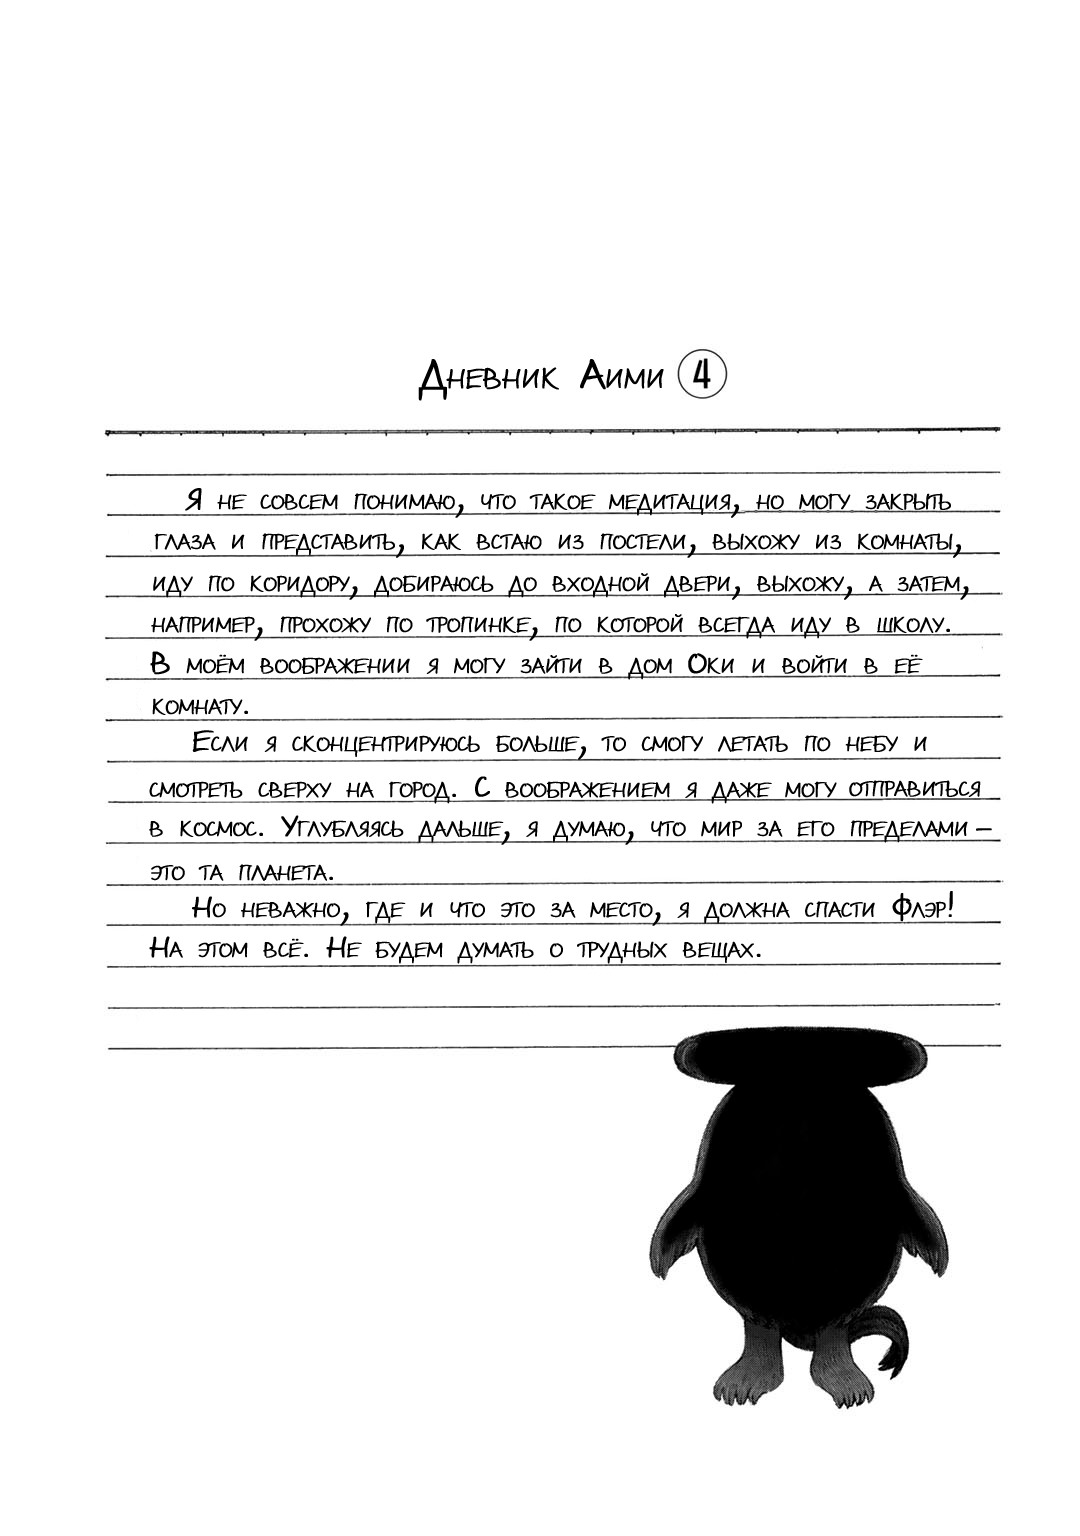 Дневник Аими 4
Я не совсем понимаю, что такое медитация, но могу закрыть
глаза и представить, как встаю из постели, выхожу из комнаты,
иду по коридору, добираюсь до входной двери, выхожу, а затем,
например, прохожу по тропинке, по которой всегда иду в школу.
В моём воображении я могу зайти в дом Оки и войти в её
комнату.
Если я сконцентрируюсь больше, то смогу летать по небу и
смотреть сверху на город. С воображением я даже могу отправиться
в космос. Углубляясь дальше, я думаю, что мир за его пределами —
это та планета.
Но неважно, где и что это за место, я должна спасти Флэр!
На этом всё. Не будем думать о трудных вещах.